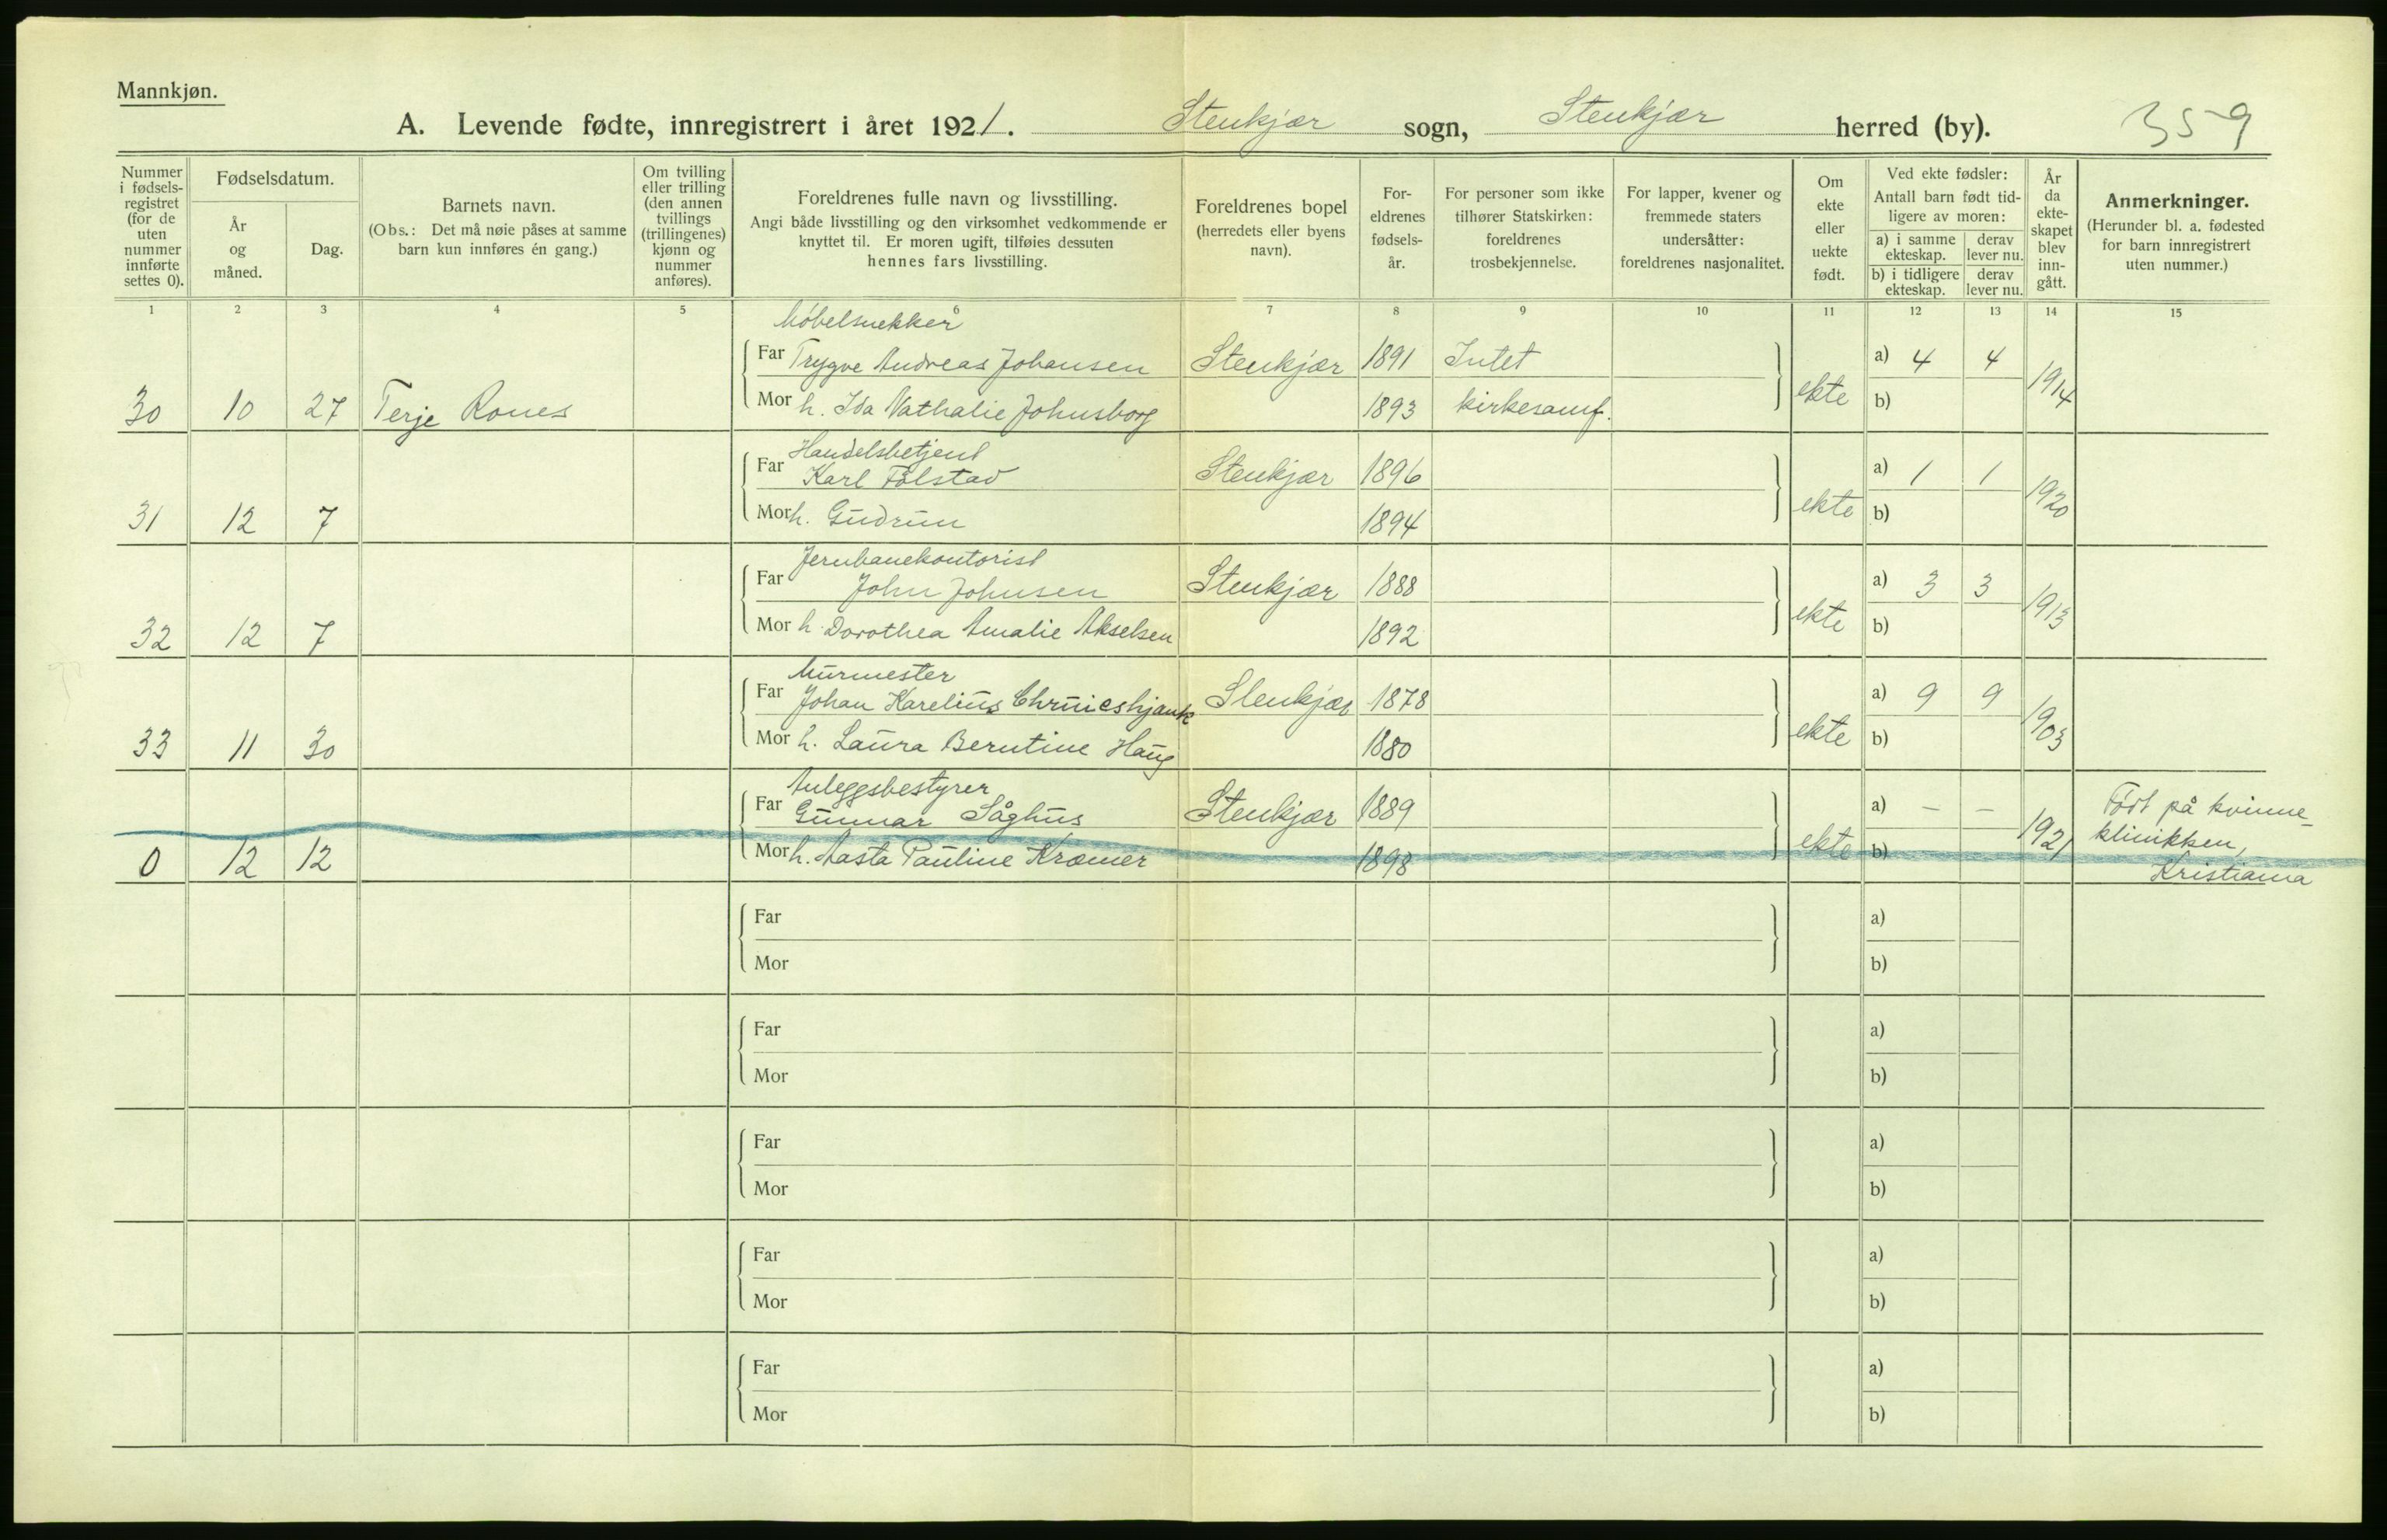 Mannkjøn.
A. Levende fødte, innregistrert i året 1921. Stenkjær sogn, Stenkjær herred (by). 359
Nummer i fødsels-registret (for de uten nummer innførte settes 0).
Fødselsdatum.
År og måned.
Dag.
Barnets navn.
(Obs.: Det må nøie påses at samme barn kun innføres én gang.)
Om tvilling eller trilling (den annen tvillings (trillingenes) kjønn og nummer anføres).
Foreldrenes fulle navn og livsstilling.
Angi både livsstilling og den virksomhet vedkommende er knyttet til. Er moren ugift, tilføies dessuten hennes fars livsstilling.
Foreldrenes bopel (herredets eller byens navn).
For-eldrenes fødsels-år.
For personer som ikke tilhører Statskirken: foreldrenes trosbekjennelse.
For lapper, kvener og fremmede staters undersåtter: foreldrenes nasjonalitet.
Om ekte eller uekte født.
Ved ekte fødsler:
Antall barn født tid-ligere av moren:
a) i samme ekteskap. derav lever nu.
b) i tidligere ekteskap. derav lever nu.
År da ekte-skapet blev inn-gått.
Anmerkninger.
(Herunder bl. a. fødested for barn innregistrert uten nummer.)
1 2 3 4 5 6 7 8 9 10 11 12 13 14 15
Møbelsnekker
Far Trygve Andreas Johansen Stenkjær 1891 Intet a) 4 4
30 10 27 Terje Rones Mor h. Ida Nathalie Johnsborg 1893 kirkesamf. ekte b) 1914
Handelsbetjent
Far Karl Følstad Stenkjær 1896 a) 1 1
31 12 7 Mor h. Gudrun 1894 ekte b) 1920
Jernbanekontorist
Far John Johnsen Stenkjær 1888 a) 3 3
32 12 7 Mor h. Dorothea Amalie Akselsen 1892 ekte b) 1913
Murmester
Far Johan Karelius Stenkjær 1878 a) 9 9
33 11 30 Mor h. Laura Berntine Haug 1880 ekte b) 1903
Anleggsbestyrer
Far Gunnar Såghus Stenkjær 1889 a) – – Født på kvinne-
0 12 12 Mor h. Aasta Pauline Kræmer 1898 ekte b) 1921 klinikken,
Kristiania
Far a)
Mor b)
Far a)
Mor b)
Far a)
Mor b)
Far a)
Mor b)
Far a)
Mor b)